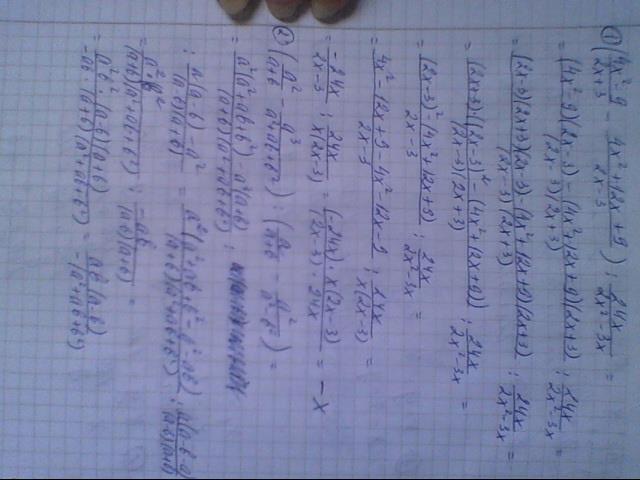 ① (4x²-9/2x+3 - 4x²+12x+9/2x-3) : 24x/2x²-3x =
= (4x²-9)(2x-3) - (4x²+12x+9)(2x+3)/(2x-3)(2x+3) : 24x/2x²-3x =
= (2x-3)(2x+3)(2x-3) - (4x²+12x+9)(2x+3)/(2x-3)(2x+3) : 24x/2x²-3x =
= (2x+3)((2x-3)² - (4x²+12x+9))/(2x-3)(2x+3) : 24x/2x²-3x =
= (2x-3)² - (4x²+12x+9)/2x-3 : 24x/2x²-3x =
= 4x²-12x+9-4x²-12x-9/2x-3 : 24x/x(2x-3) =
= -24x/2x-3 : 24x/x(2x-3) = (-24x)·x(2x-3)/(2x-3)·24x = -x
② (a²/a+b - a³/a²+ab+b²) : (a/a+b - a²/a²-b²) =
= a²(a²+ab+b²) - a³(a+b)/(a+b)(a²+ab+b²) :
: a(a-b)-a²/(a-b)(a+b) = a²(a²+ab+b²-a²-ab)/(a+b)(a²+ab+b²) : a(a-b-a)/(a-b)(a+b) =
= a²b²/(a+b)(a²+ab+b²) : -ab/(a-b)(a+b) =
= a²b²·(a-b)(a+b)/-ab·(a+b)(a²+ab+b²) = ab(a-b)/-(a²+ab+b²)